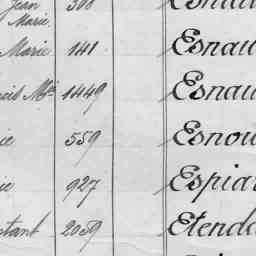 Jean 308 Esnau
Marie
Marie 141 Esnau
cois Mie 1449 Esnau
ie 559 Esnou
ie 927 Espiar
stant 2059 Etenda